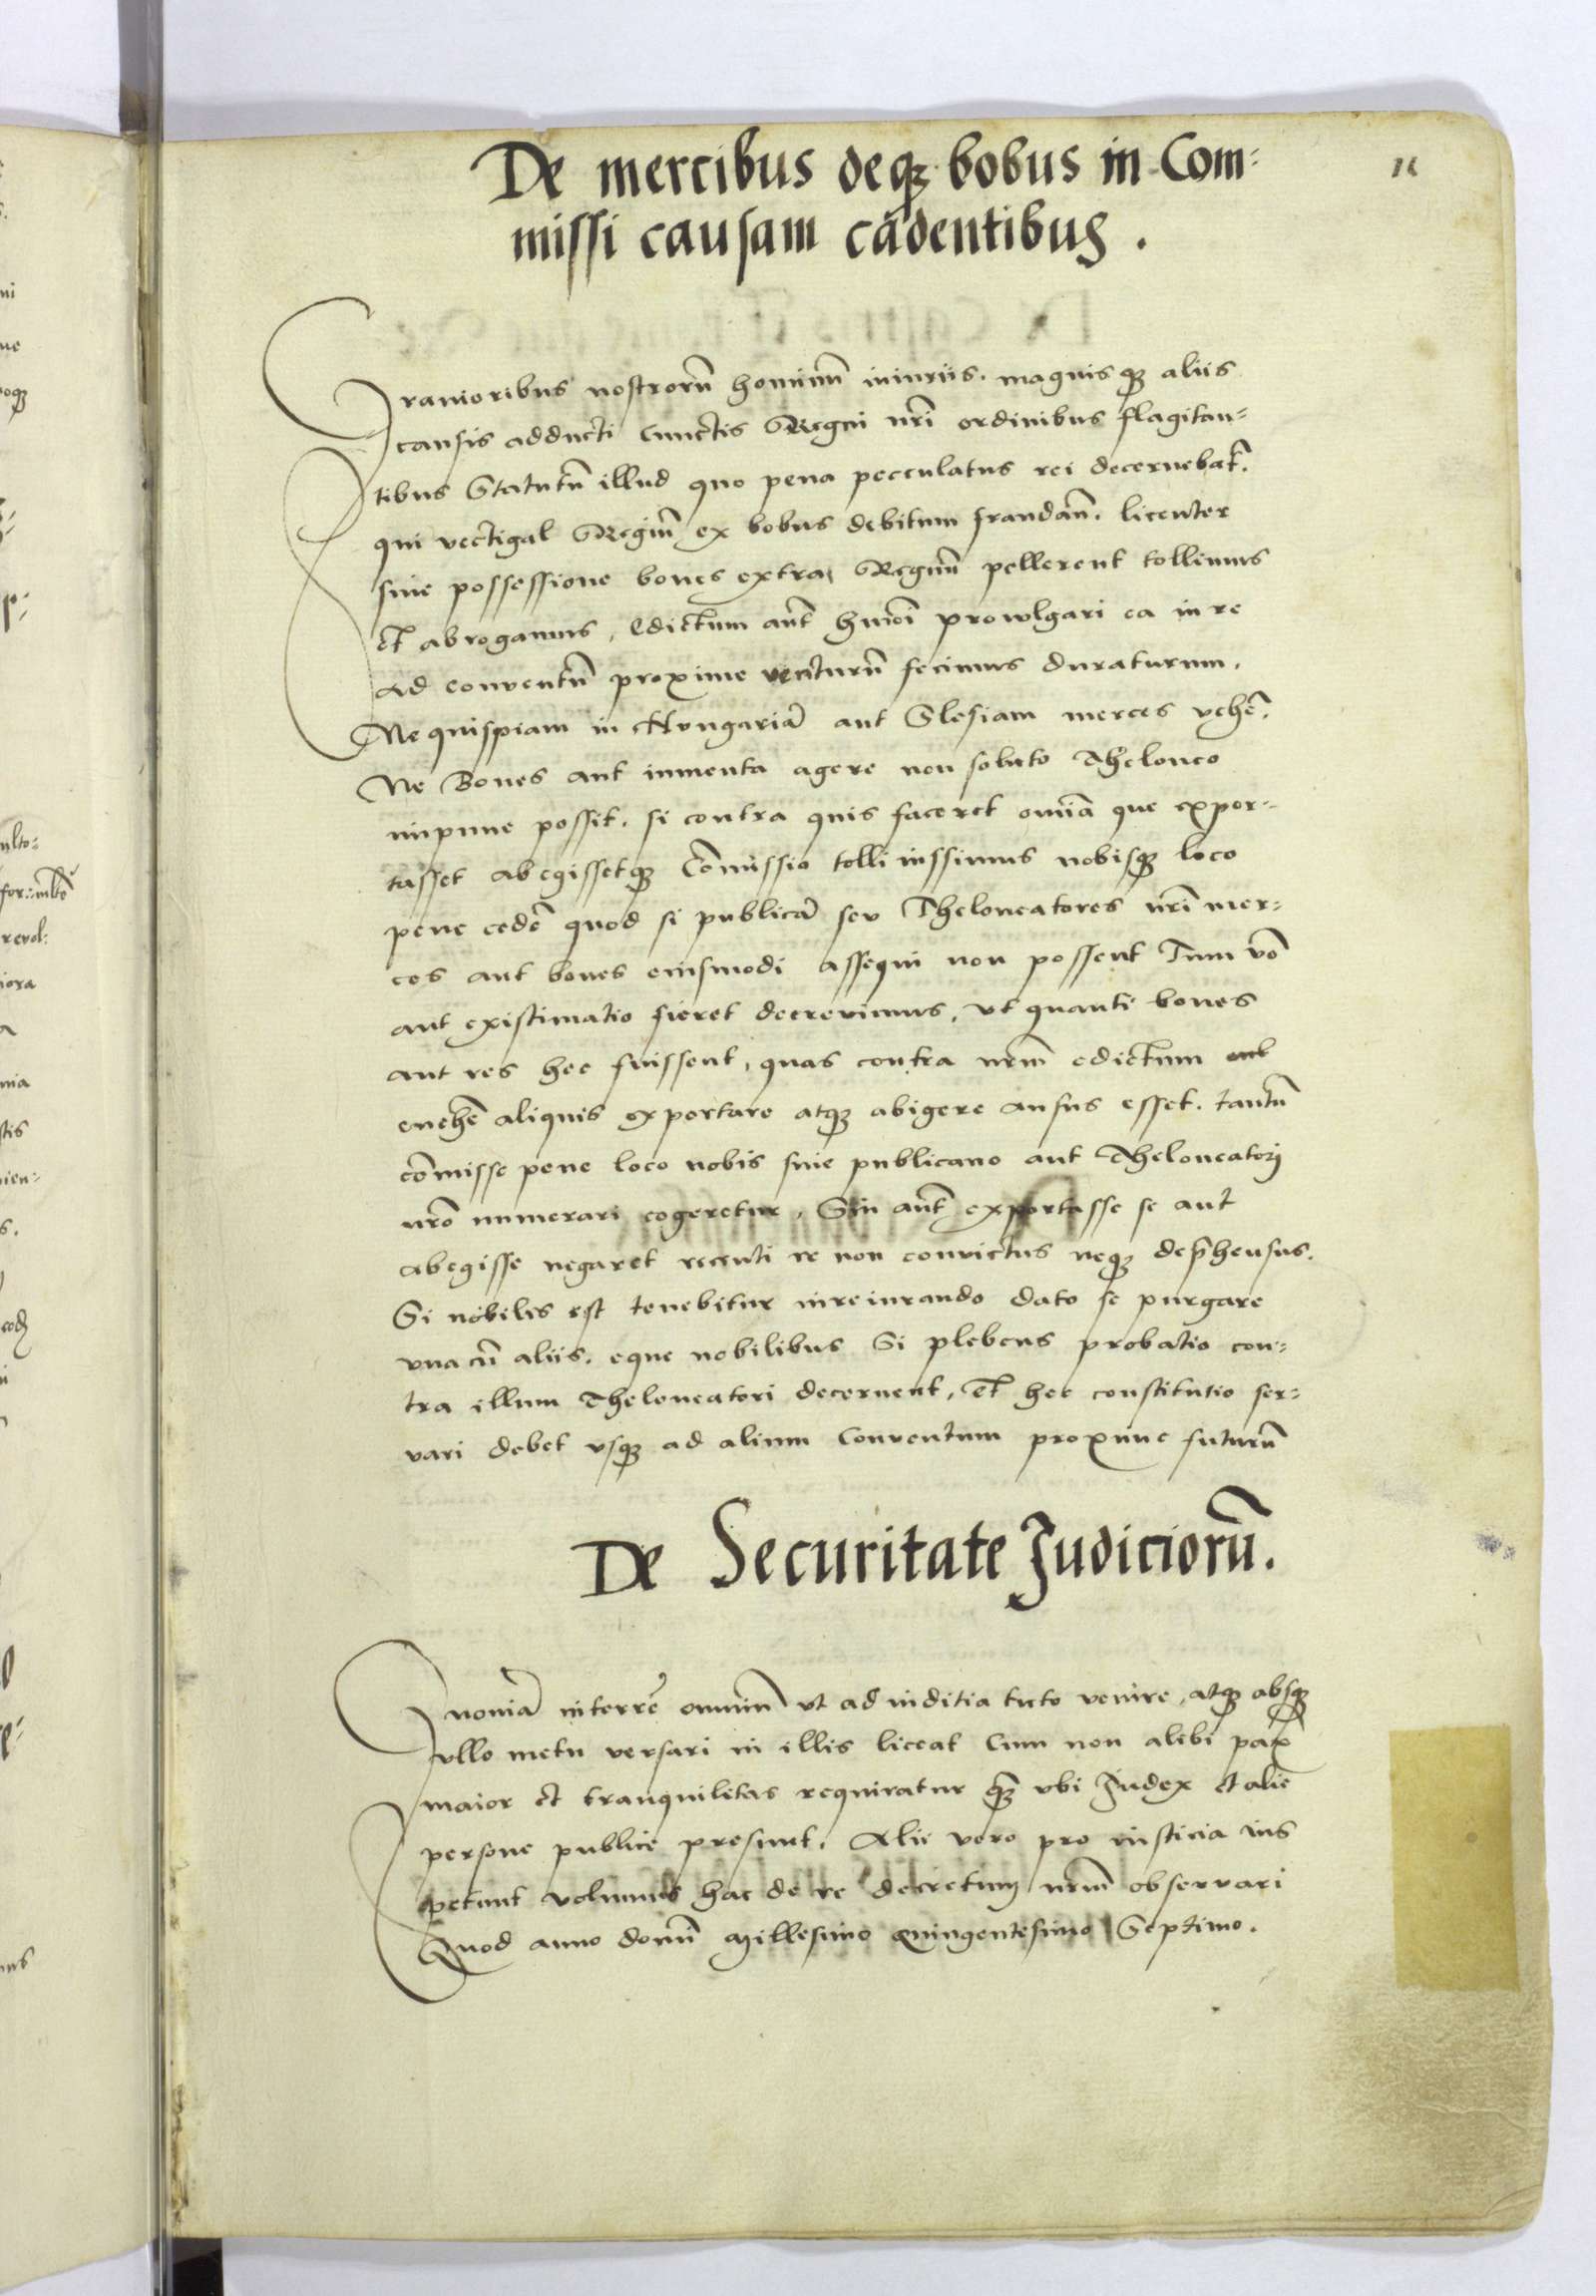 11
De mercibus deq₃ bobus in Com:
missi causam cadentibus .
Gravioribus nostrorū hominū iniuriis. magnisq₃ aliis
causis adducti Cunctis Regni nr̄i ordinibus flagitan:
tibus Statutū illud quo pena pecculatus rei decernebat̄.
qui vectigal Regiū ex bobus debitum frandan̄. licenter
sine possessione boves extra Regnū pellerent tollimus
et abrogamus, Edictum aūt hm̄oi prowlgari ea in re
ad conventū proxime venturū fecimus duraturum.
Ne quispiam in Hvngariā aut Slesiam merces vehē.
Ne Boves aut iumenta agere non soluto Theloneo
impune possit. si contra quis faceret omīa que expor:
tasset abegissetq₃ Cōmissio tolli iussimus nobisq₃ loco
pene cedē quod si publicā sev Theloneatores nr̄i mer:
ces aut boves eiusmodi assequi non possent Tum vō
aut existimatio fieret decrevimus, vt quanti boves
aut res hee fuissent, quas contra nrm̄ edictum
evehē aliquis exportare atq₃ abigere ausus esset. tantū
cōmisse pene loco nobis sive publicano aut Theloneatori
nrō numerari cogeretur, Sin aūt exportasse se aut
abegisse negaret recenti re non convictus neq₃ dep̄hensus.
Si nobilis est tenebitur iureiurando dato se purgare
vna cū aliis. eque nobilibus Si plebeus probatio con:
tra illum Theloneatori decernent, Et hec constitutio ser:
vari debet vsq₃ ad alium Conventum proxime futurū
De Securitate Judiciorū.
Quoniā interrē omniū vt ad iuditia tuto venire, atq₃ absq₃
vllo metu versari in illis liceat Cum non alibi pax
maior et tranquilitas requiratur q₃̄ vbi Judex et alie
persone publice presunt. Alii vero pro iusticia ius
petunt volumus hac de re decretum nrm̄ observari
Quod anno domī Millesimo Quingentesimo Septimo.